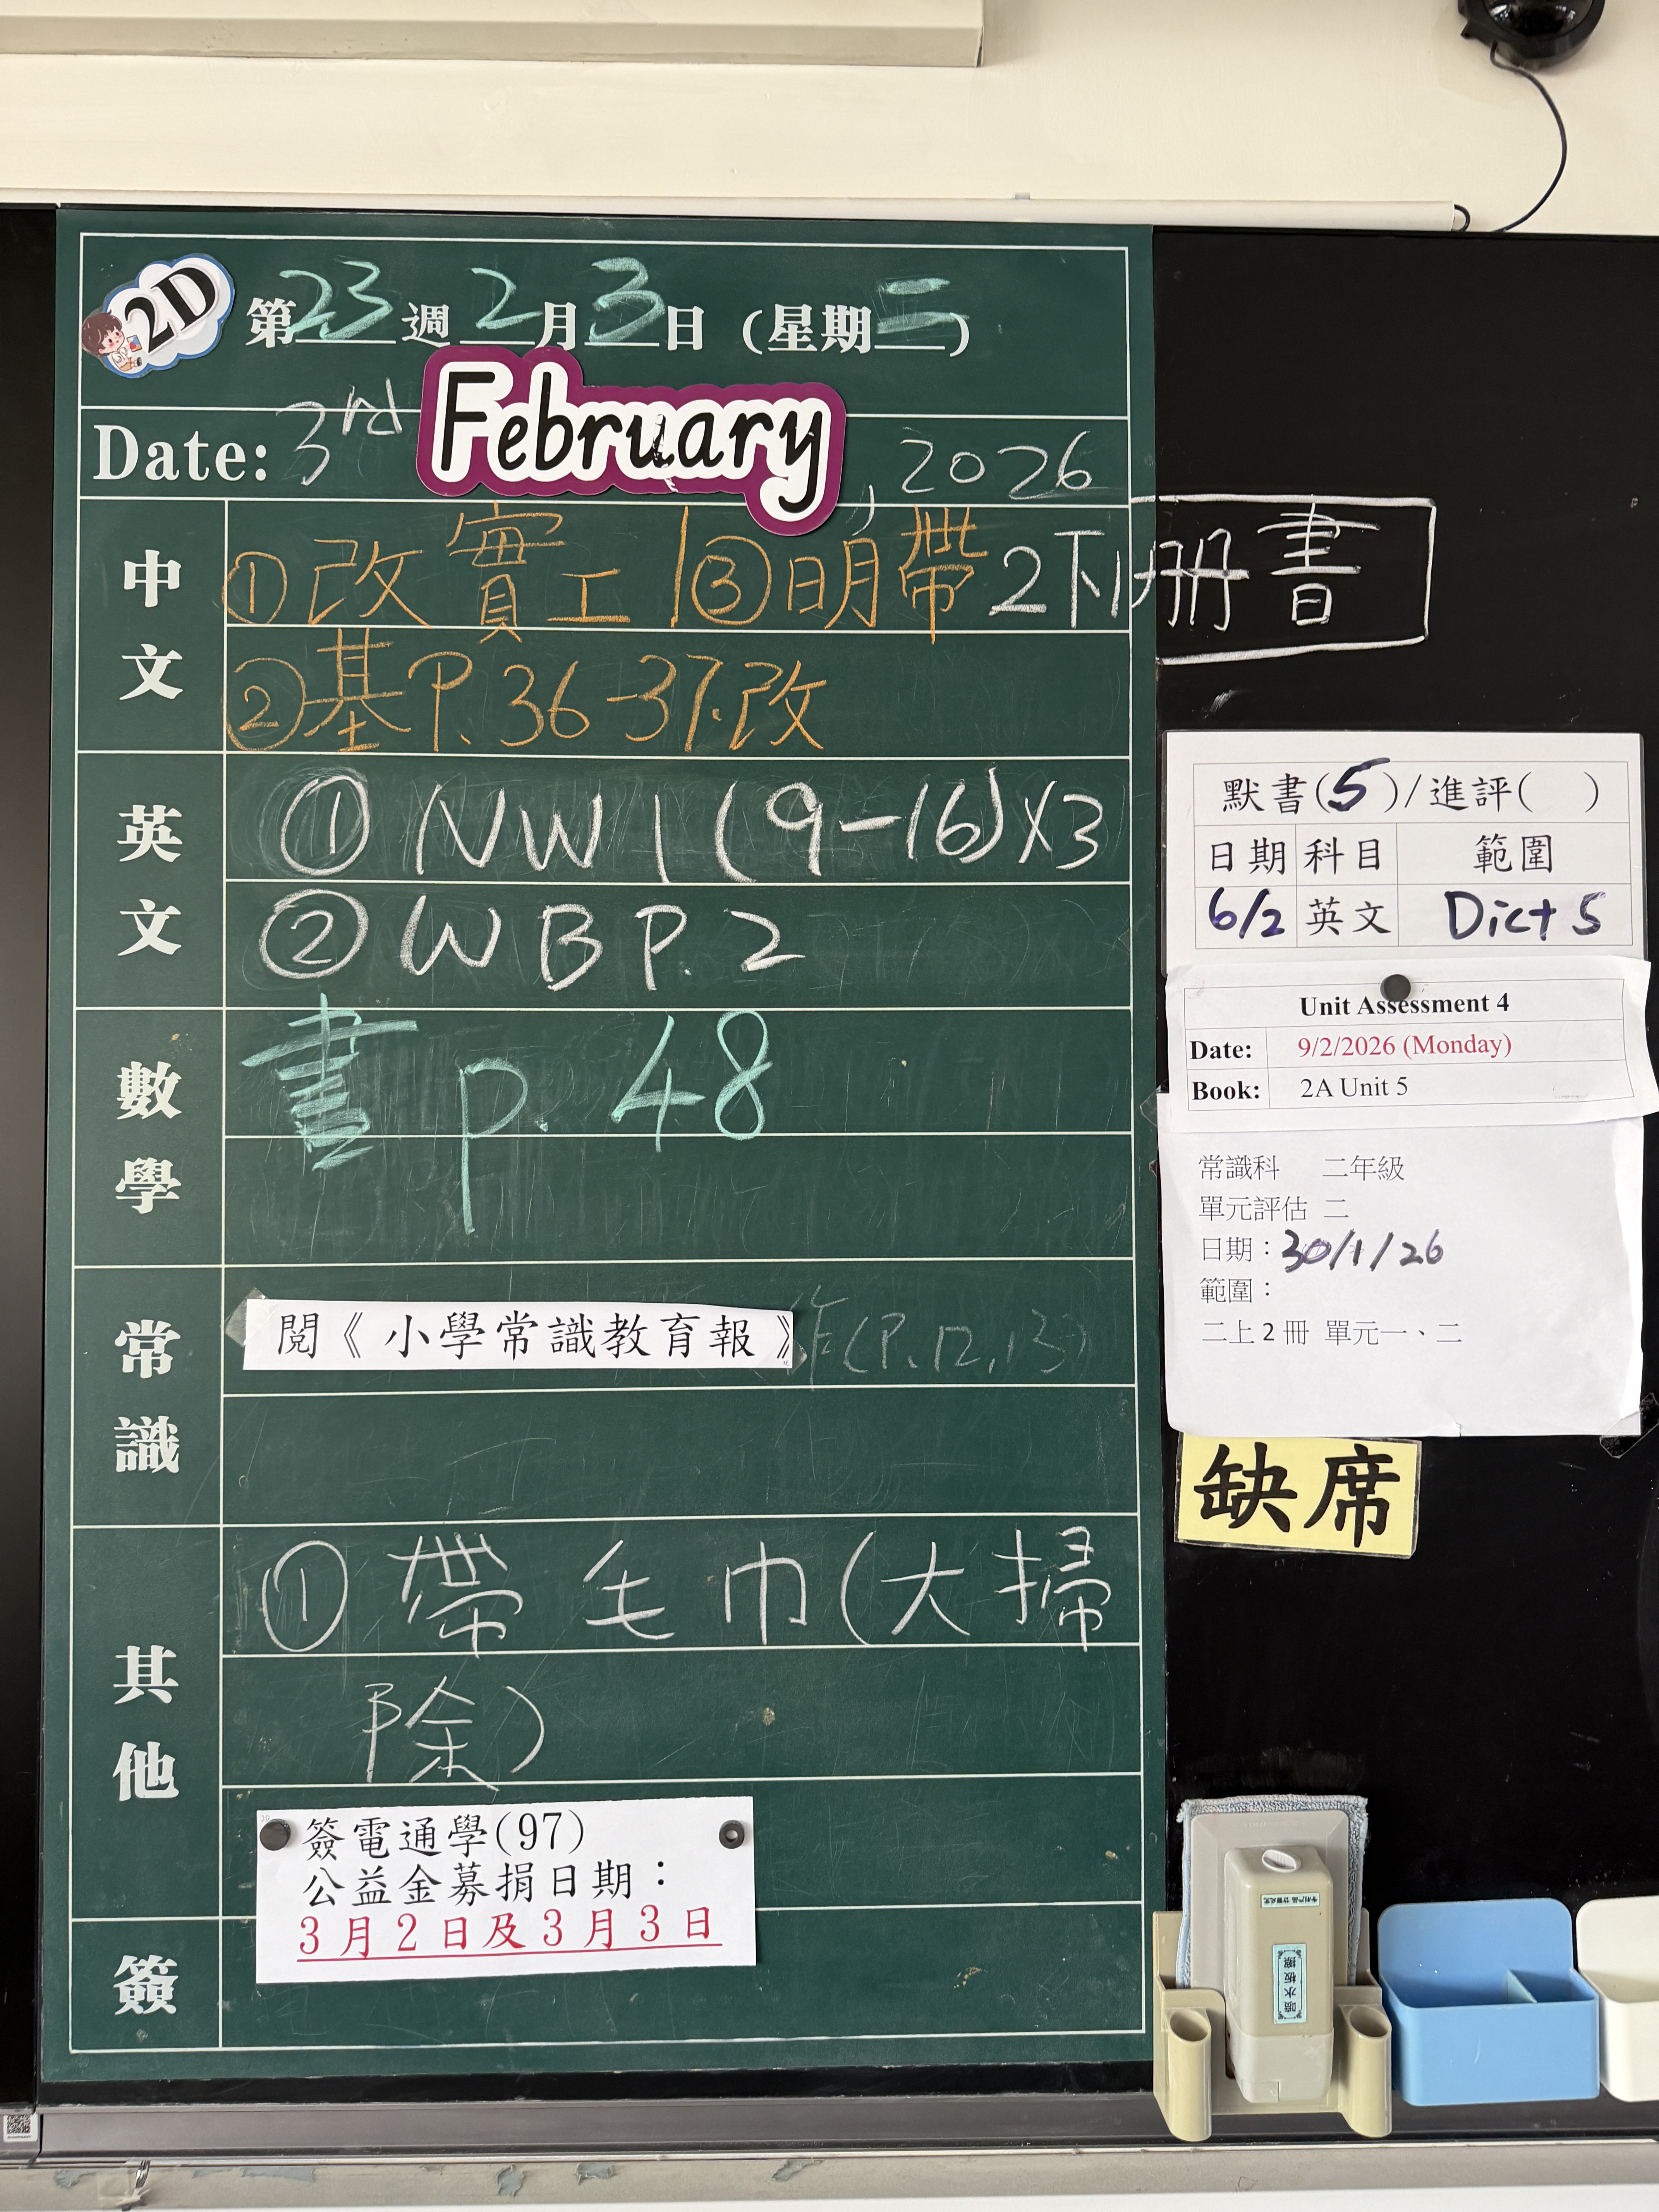 2D
第23週2月3日(星期二)
Date: 3rd February, 2026
中文
①改實工
③明帶2下1冊書
②基P.36-37.改
英文
①NW1(9-16)x3
②WB P.2
數學
書p.48
常識
閱《小學常識教育報》
作(P.12,13)
其他
①帶毛巾(大掃
除)
簽電通學(97)
公益金募捐日期：
3月2日及3月3日
簽
默書(5)/進評( )
日期 科目 範圍
6/2 英文 Dict 5
Unit Assessment 4
Date: 9/2/2026 (Monday)
Book: 2A Unit 5
常識科 二年級
單元評估 二
日期：30/1/26
範圍：
二上2冊 單元一、二
缺席
噴水板擦